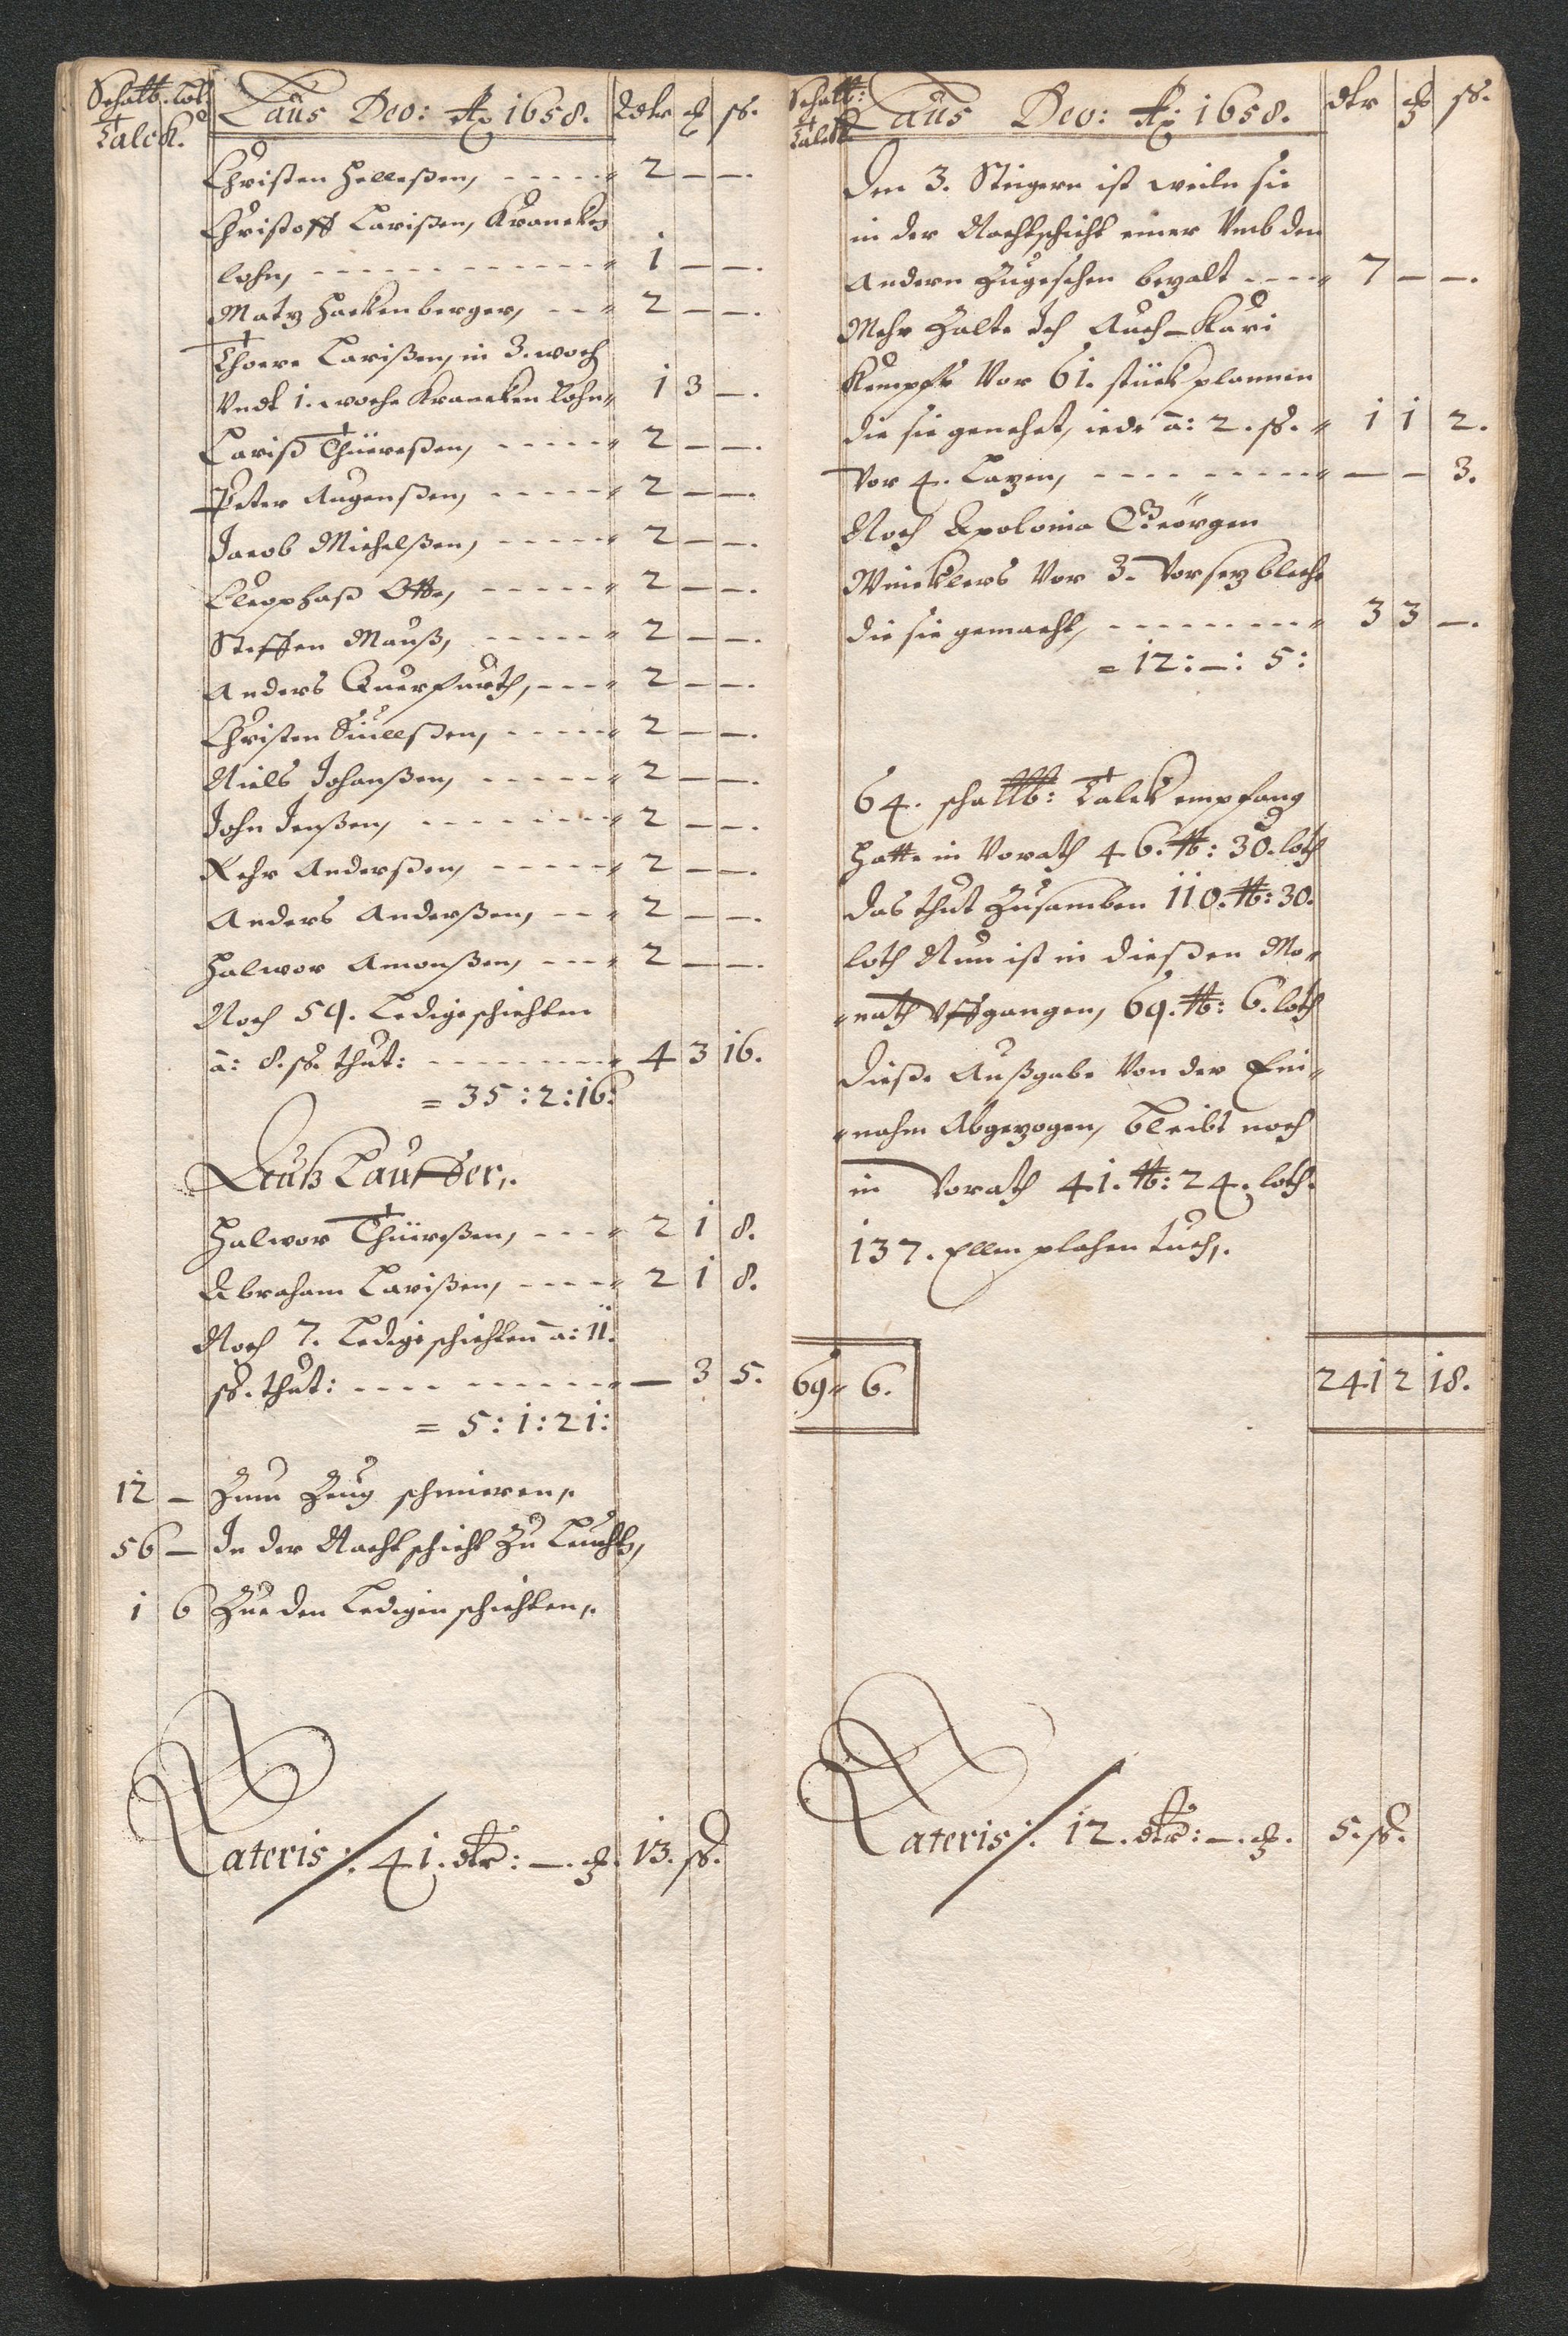 Schalb: lot
Talck.
Laus Deo: Ao 1658. Rdtr ȹ ß.
Christen Helleßen, ----- 2 — —.
Christoff Larißen, Krancken
lohn, ------ 1 — —.
Matz Hackenberger, -- 2 — —.
Thoere Larißen, in 3. woch
Undt 1. woche Krancken lohn 1 3 —.
Lariß Thüereßen, ----- 2 — —.
Peter Augenßen, ----- 2 — —.
Jacob Michelßen, ----- 2 — —.
Cleophaß Otte, ----- 2 — —.
Steffen Mauß, ----- 2 — —.
Anders Querfurth, --- 2 — —.
Christen ----- 2 — —.
Niels Johanßen, ----- 2 — —.
John Jenßen, ------ 2 — —.
Rehr Anderßen, ----- 2 — —.
Anders Anderßen, -- 2 — —.
Halwor Amonßen, --- 2 — —.
Noch 59. Ledige schichten
à: 8. ß. thut: ------- 4 3 16.
= 35 : 2 : 16:
Lauffer,.
Halwor Thüreßen, --- 2 1 8.
Abraham Larißen, ---- 2 1 8.
Noch 7. Ledige schichten à: 11.
ß. thut: ---- ------ — 3 5.
= 5 : 1 : 21:
12 — Zum Zeug schmieren,.
56 — In der Nacht schicht Zu Leuchten,
1 6 Zue den Ledigen schichten,.
Lateris ./. 41. dtr: —. ȹ. 13. ß.
Schalb:
Talck
Laus Deo: Ao 1658. dtr ȹ ß.
Den 3. Steigern ist weiln sie
in der Nachtschicht einer Umb den
Andern Zugesehen bezalt ---- 7 — —.
Mehr Zalte Ich Auch Kari
Kempffs Vor 61. stück plannen
die sie genehet, iede à: 2. ß. 1 1 2.
Vor 4. ---- ------ — — 3.
Noch Apolonia Geörgen
Wincklers Vor 3. Vorsez bleche
die sie gemacht, -------- 3 3 —.
= 12 : — : 5 :
64. schalb: Talck empfang
Hatte in Vorath 46. ℔: 30. loth
das thut Zusamben 110. ℔: 30.
loth Nun ist in dießen Mo-
-nath Uffgangen, 69. ℔: 6. loth
Dieße Außgabe Von der Ein-
-nahm Abgezogen, bleibt noch
in Vorath 41. ℔: 24. loth.
137. Ellen plahen tuch,.
69 6. 241 2 18.
Lateris ./. 12. dtr: —. ȹ. 5. ß.